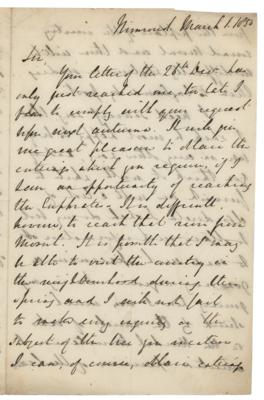 Nimroud March 1. 1850
Sir,
Your letter of the 28th Decr has
only just reached me, too late I
fear to comply with your request
before next autumn. It will give
me great pleasure to obtain the
cuttings which you require, if I
have an opportunity of reaching
the Euphrates. It is difficult
however, to reach that river from
Mosul. It is possible that I may
be able to visit the country in
the neighbourhood, during the
spring and I will not fail
to make every enquiry on the
subject of the tree you mention
I can, of course, obtain cuttings